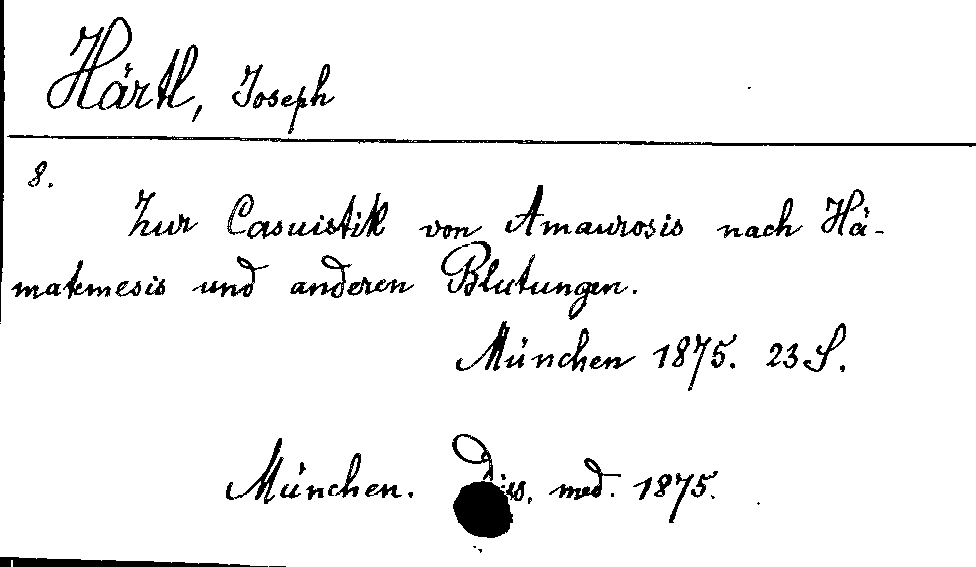 Härtl, Joseph
8.
Zur Casuistik von Amaurosis nach Hä-
matemesis und anderen Blutungen.
München 1875. 23 S.
München. Diss. med. 1875.